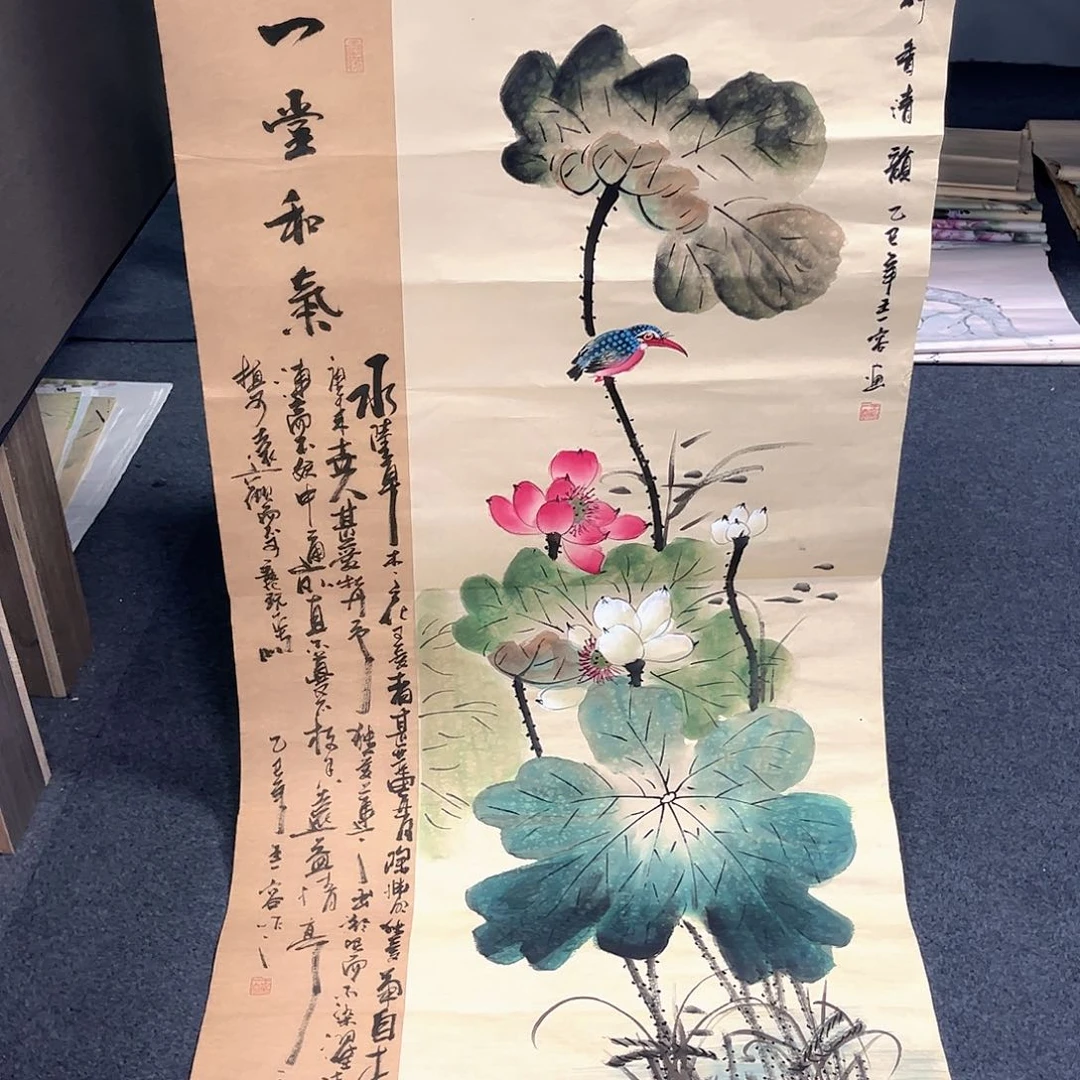 香清韻 乙丑年王一容画
一堂和氣
水陸草木之花可愛者甚蕃晋陶淵明独愛菊自李
唐來世人甚愛牡丹予独愛蓮之出淤泥而不染濯清
漣而不妖中通外直不蔓不枝香遠益清亭
植可遠觀而不可褻玩焉
乙丑年王一容作